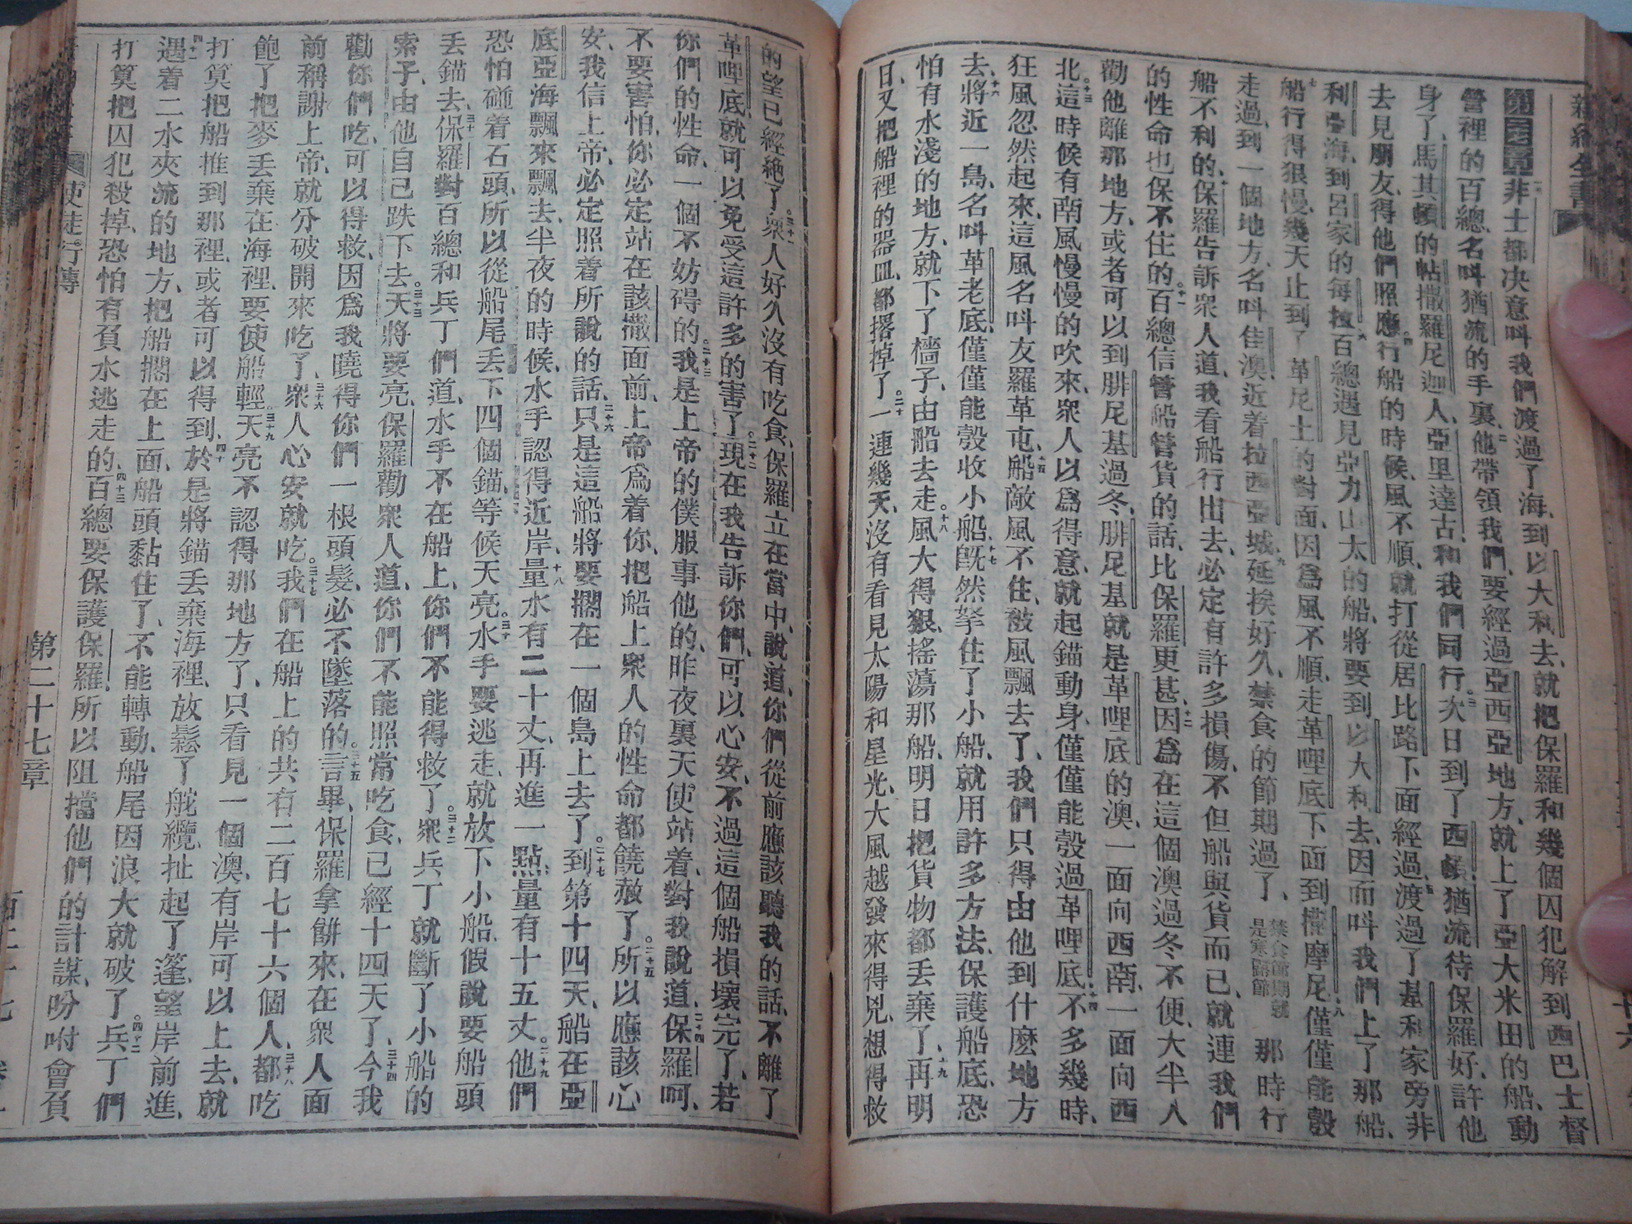 新約全書
第二十七章非士都决意叫我們渡過了海、到以大利去、就把保羅和幾個囚犯解到西巴士督
營裡的百總、名叫猶流的手裏、他帶領我們、要經過亞西亞地方、就上了亞大米田的船、動
身了、馬其頓的帖撒羅尼迦人、亞里達古、和我們同行、次日到了西頓、猶流待保羅好、許他
去見朋友、得他們照應、行船的時候、風不順、就打從居比路下面經過、渡過了基利家旁非
利亞海、到呂家的每拉、百總遇見亞力山太的船、將要到以大利去、因而叫我們上了那船、
船行得狠慢、幾天止到了革尼土的對面、因爲風不順、走革哩底下面、到撒摩尼、僅僅能彀
走過、到一個地方、名叫佳澳、近着拉西亞城、延挨好久、禁食的節期過了、禁食節期就是寒露節那時行
船不利的、保羅告訴衆人道、我看船行出去、必定有許多損傷、不但船與貨而已、就連我們
的性命也保不住的、百總信管船管貨的話、比保羅更甚、因爲在這個澳過冬不便、大半人
勸他離那地方、或者可以到腓尼基過冬、腓尼基就是革哩底的澳、一面向西南、一面向西
北、這時候有南風慢慢的吹來、衆人以爲得意、就起錨動身、僅僅能彀過革哩底、不多幾時、
狂風忽然起來、這風名叫友羅革屯、船敵風不住、被風飄去了、我們只得由他到什麽地方
去、將近一島、名叫革老底、僅僅能彀收小船、旣然拏住了小船、就用許多方法、保護船底、恐
怕有水淺的地方、就下了檣子、由船去走、風大得狠、搖蕩那船、明日把貨物都丟棄了、再明
日、又把船裡的器皿、都撂掉了、一連幾天、沒有看見太陽和星光、大風越發來得兇、想得救
的望已經絶了、衆人好久沒有吃食、保羅立在當中、說道、你們從前應該聽我的話、不離了
革哩底、就可以免受這許多的害了、現在我告訴你們、可以心安、不過這個船損壞完了、若
你們的性命、一個不妨碍的、我是上帝的僕、服事他的、昨夜裏天使站着、對我說道、保羅呵、
不要害怕、你必定站在該撒面前、上帝爲着你、把船上衆人的性命都饒赦了、所以應該心
安、我信上帝、必定照着所說的話、只是這船將要擱在一個島上去了、到第十四天、船在亞
底亞海飄來飄去、半夜的時候、水手認得近岸、量水有二十丈、再進一點、量有十五丈、他們
恐怕碰着石頭、所以從船尾丢下四個錨、等候天亮、水手要逃走、就放下小船、假說要船頭
丢錨去、保羅對百總和兵丁們道、水手不在船上、你們不能得救了、衆兵丁就斷了小船的
索子、由他自己跌下去、天將要亮、保羅勸衆人道、你們不能照常吃食、已經十四天了、今我
勸你們吃、可以得救、因爲我曉得你們一根頭髮、必不墜落的、言畢、保羅拿餅來、在衆人面
前稱謝上帝、就分破開來吃了、衆人心安就吃、我們在船上的、共有二百七十六個人、都吃
飽了、把麥丢棄在海裡、要使船輕、天亮不認得那地方了、只看見一個澳、有岸可以上去、就
打算把船推到那裡、或者可以得到、於是將錨丢棄海裡、放鬆了舵纜、扯起了篷、望岸前進、
遇着二水夾流的地方、把船擱在上面、船頭黏住了、不能轉動、船尾因浪大就破了、兵丁們
打算把囚犯殺掉、恐怕有貟水逃走的、百總要保護保羅、所以阻擋他們的計謀、吩咐會貟
使徒行傳 第二十七章